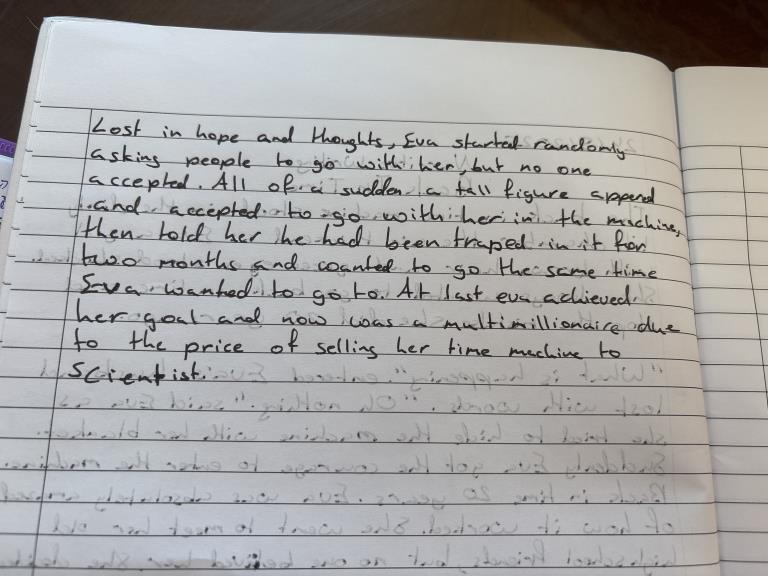 Lost in hope and thoughts, Eva started randomly
asking people to go with her, but no one
accepted. All of a sudden a tall figure append
and accepted to go with her in the machine,
then told her he had been traped in it for
two months and wanted to go the same time
Eva wanted to go to. At last eva achieved
her goal and now was a multimillionaire due
to the price of selling her time machine to
Scientist.